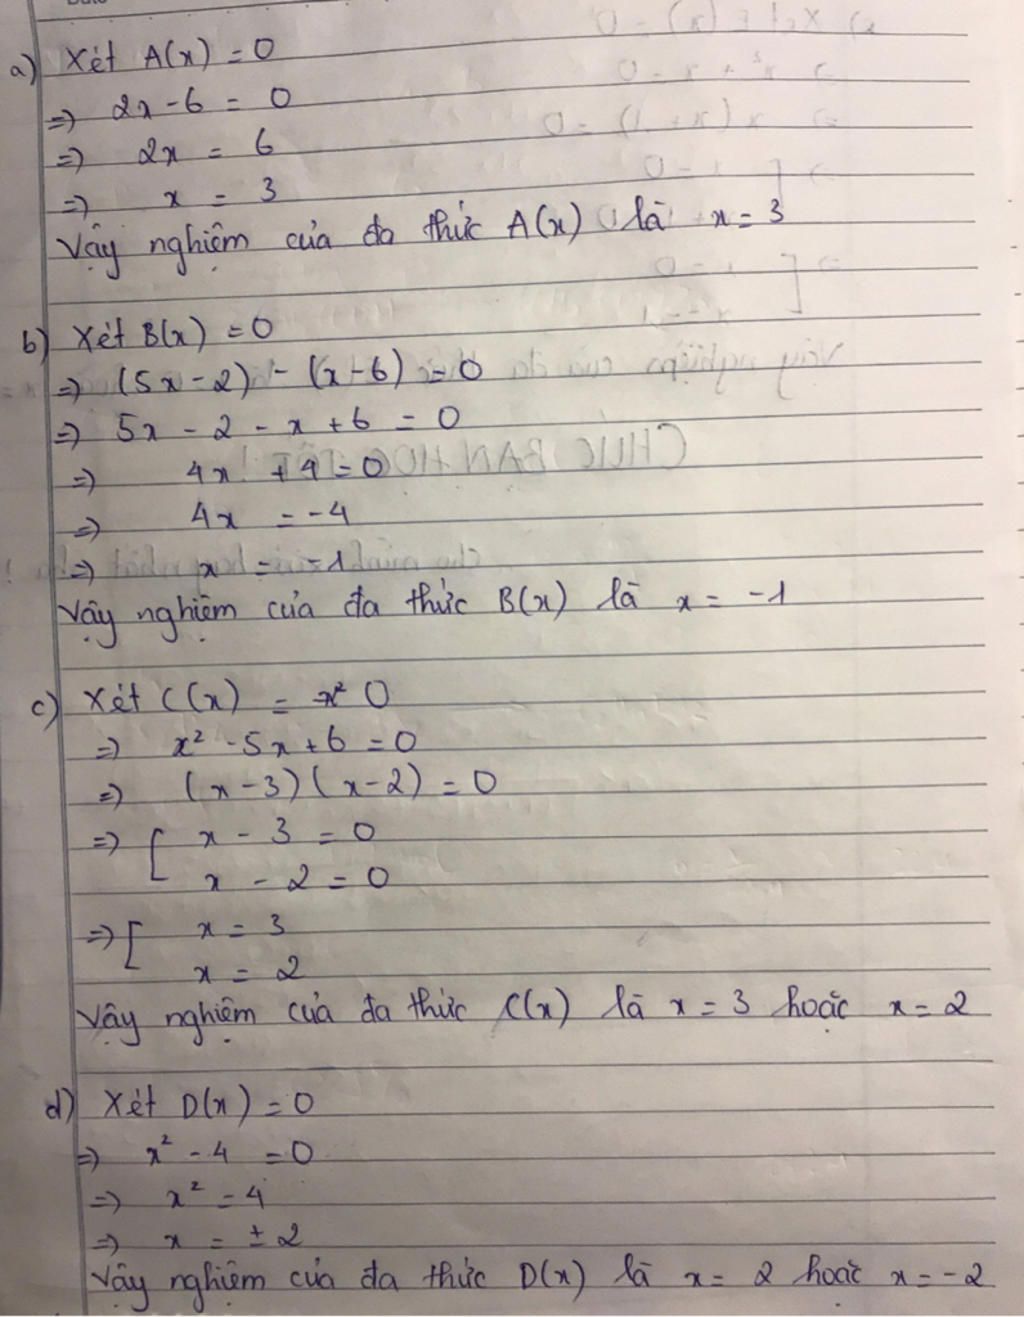 a) Xét A(x) = 0
=> 2x - 6 = 0
=> 2x = 6
=> x = 3
Vậy nghiệm của đa thức A(x) là x = 3
b) Xét B(x) = 0
=> (5x - 2) - (x - 6) = 0
=> 5x - 2 - x + 6 = 0
=> 4x + 4 = 0
=> 4x = -4
=> x = -1
Vậy nghiệm của đa thức B(x) là x = -1
c) Xét C(x) = 0
=> x² - 5x + 6 = 0
=> (x - 3)(x - 2) = 0
=> [ x - 3 = 0
x - 2 = 0
=> [ x = 3
x = 2
Vậy nghiệm của đa thức C(x) là x = 3 hoặc x = 2
d) Xét D(x) = 0
=> x² - 4 = 0
=> x² = 4
=> x = ± 2
Vậy nghiệm của đa thức D(x) là x = 2 hoặc x = -2